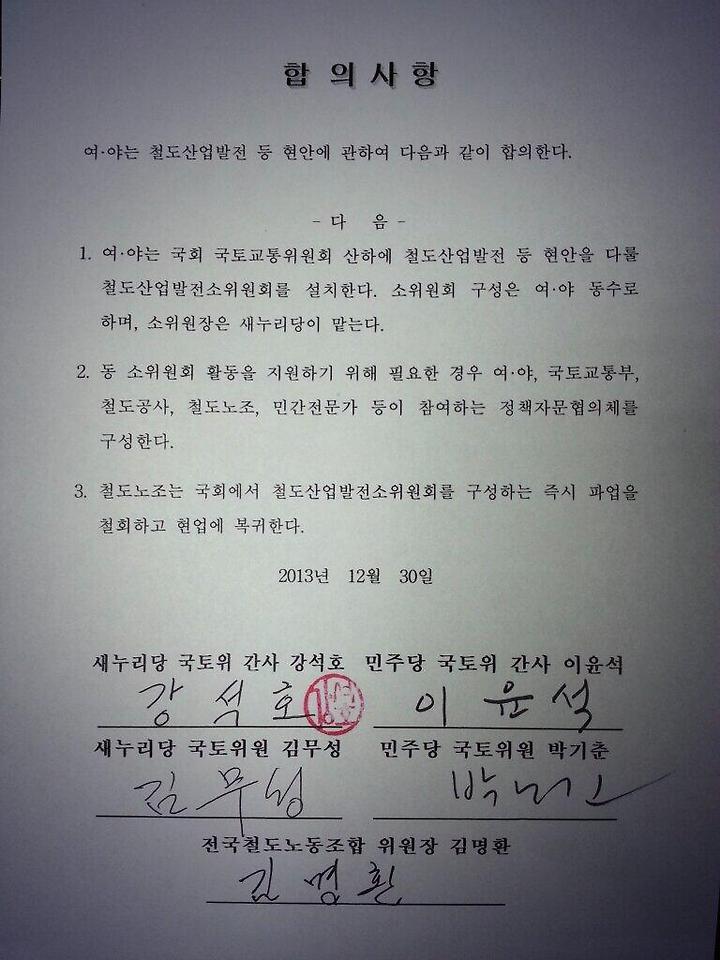 합 의 사 항
여·야는 철도산업발전 등 현안에 관하여 다음과 같이 합의한다.
- 다 음 -
1. 여·야는 국회 국토교통위원회 산하에 철도산업발전 등 현안을 다룰
철도산업발전소위원회를 설치한다. 소위원회 구성은 여·야 동수로
하며, 소위원장은 새누리당이 맡는다.
2. 동 소위원회 활동을 지원하기 위해 필요한 경우 여·야, 국토교통부,
철도공사, 철도노조, 민간전문가 등이 참여하는 정책자문협의체를
구성한다.
3. 철도노조는 국회에서 철도산업발전소위원회를 구성하는 즉시 파업을
철회하고 현업에 복귀한다.
2013년 12월 30일
새누리당 국토위 간사 강석호 민주당 국토위 간사 이윤석
강 석 호 이 윤 석
새누리당 국토위원 김무성 민주당 국토위원 박기춘
김 무 성
전국철도노동조합 위원장 김명환
김 명 환